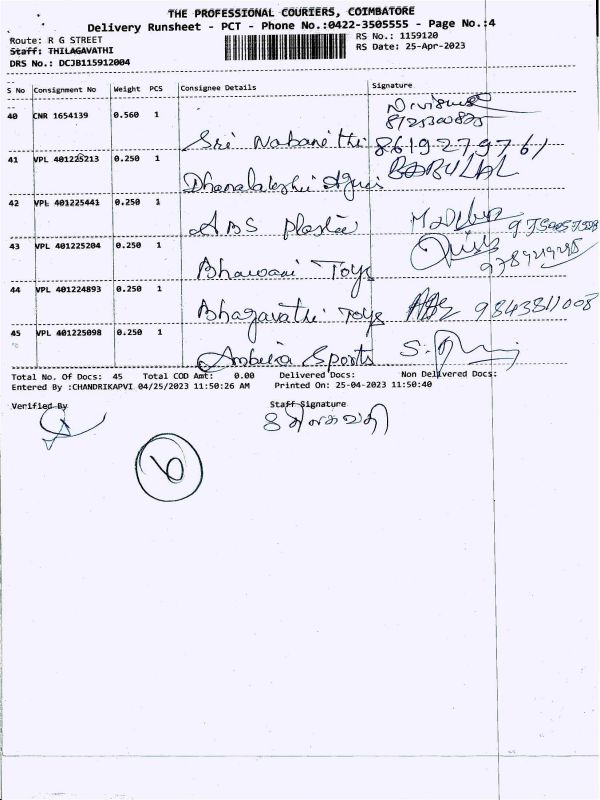 THE PROFESSIONAL COURIERS, COIMBATORE
Delivery Runsheet - PCT - Phone No.:0422-3505555 - Page No.:4
Route: R G STREET
RS No.: 1159120
Staff: THILAGAVATHI
RS Date: 25-Apr-2023
DRS No.: DCJB115912004
S No Consignment No Weight PCS Consignee Details Signature
40 CNR 1654139 0.560 1
Sri Nabanithi 8619279761
41 VPL 401225213 0.250 1 BABULAL
Dhanalakshi
42 VPL 401225441 0.250 1
ABS Plastic
43 VPL 401225204 0.250 1
Bhawani Toys
44 VPL 401224893 0.250 1
Bhagavathi Toys 9843811008
45 VPL 401225098 0.250 1
Ambica Sports
Total No. Of Docs: 45 Total COD Amt: 0.00 Delivered Docs: Non Delivered Docs:
Entered By :CHANDRIKAPVI 04/25/2023 11:50:26 AM Printed On: 25-04-2023 11:50:40
Verified By Staff Signature